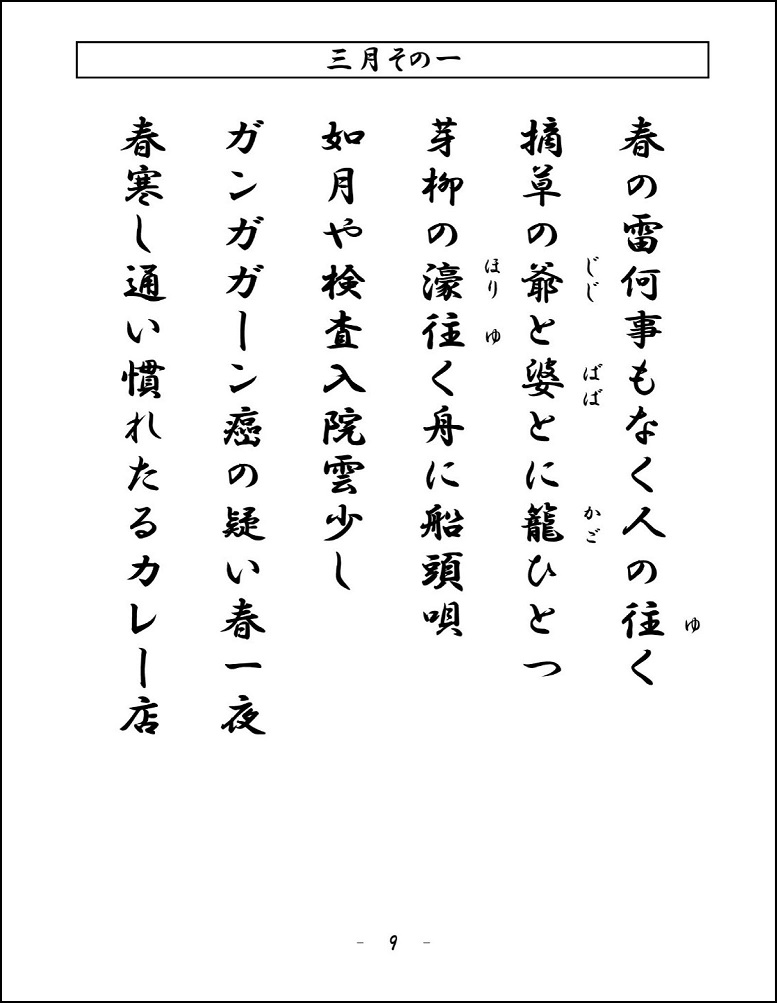 三月その一
春の雷何事もなく人の往く
ゆ
摘草の爺と婆とに籠ひとつ
じじ ばば かご
芽柳の濠往く舟に船頭唄
ほり ゆ
如月や検査入院雲少し
ガンガガーン癌の疑い春一夜
春寒し通い慣れたるカレー店
- 9 -